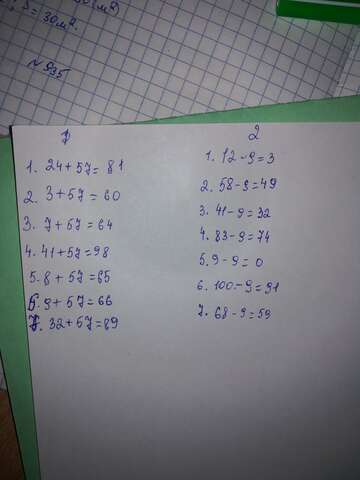 S = 30м².
N 935
1
1. 24+57= 81
2. 3+57 = 60
3. 7+57 = 64
4. 41+57 = 98
5. 8+57 = 65
6. 9+57 = 66
7. 32+57 = 89
2
1. 12-9=3
2. 58-9=49
3. 41-9=32
4. 83-9=74
5. 9-9= 0
6. 100-9=91
7. 68-9=59